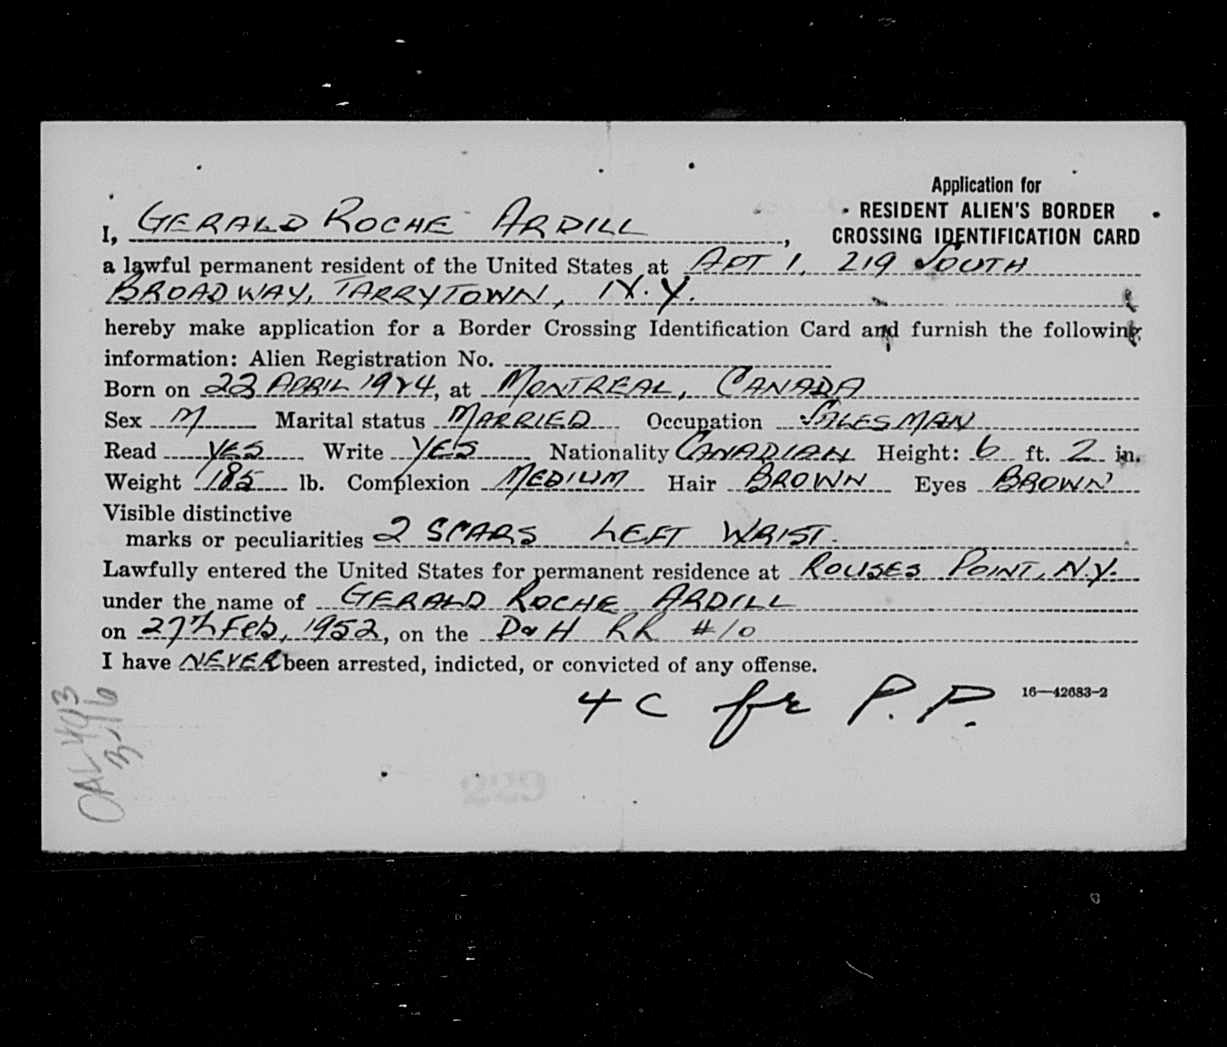 Application for
RESIDENT ALIEN'S BORDER
CROSSING IDENTIFICATION CARD
I, GERALD ROCHE ARDILL,
a lawful permanent resident of the United States at APT 1, 219 SOUTH
BROADWAY, TARRYTOWN, N.Y.
hereby make application for a Border Crossing Identification Card and furnish the following
information: Alien Registration No.
Born on 22 APRIL 1924, at MONTREAL, CANADA
Sex M Marital status MARRIED Occupation SALESMAN
Read YES Write YES Nationality CANADIAN Height: 6 ft. 2 in.
Weight 185 lb. Complexion MEDIUM Hair BROWN Eyes BROWN
Visible distinctive
marks or peculiarities 2 SCARS LEFT WRIST.
Lawfully entered the United States for permanent residence at ROUSES POINT, N.Y.
under the name of GERALD ROCHE ARDILL
on 27th Feb, 1952, on the D&H RR #10
I have NEVER been arrested, indicted, or convicted of any offense.
16—42683-2
4 C for P.P.
CAL 443
3-16
229